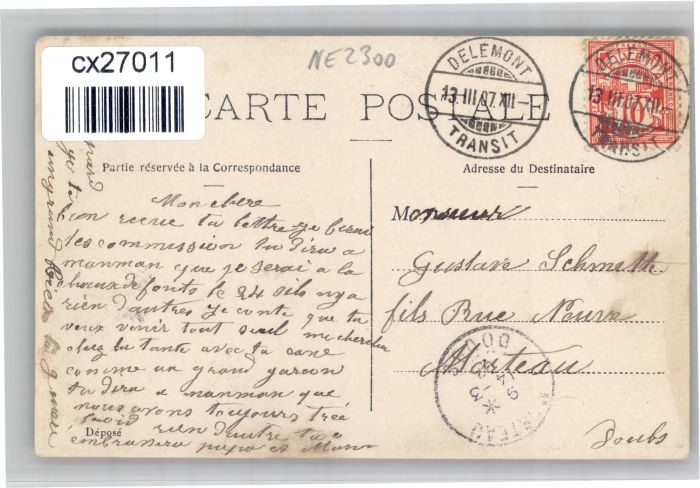 cx27011
NE2300
CARTE POSTALE
DELEMONT
13.III.07.XII-
TRANSIT
DELEMONT
13.III.07.XII-
TRANSIT
10
Partie réservée à la Correspondance
Adresse du Destinataire
Mon chere
bien recrue ta lettre je ferai
les commission tu dira a
manman que je serai a la
chaux de fonts le 24 sils nya
rien dautres je conte que tu
veux venir tout seul me chercher
chez ta tante avec ta cane
comme un grand garcon
tu dira a manman que
nous avons toujours treé
froid rien dautre ta
embrassera papa et Mman
Monsieur
Gustave Schmitt
fils Rue Neuve
Morteau
Doubs
MORTEAU
DOUBS
Déposé